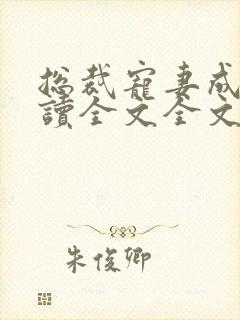 总裁寵妻成
讀全文全文
朱俊卿